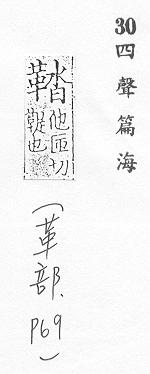 30 四聲篇海
鞜 他匝切 鞮也
(革部、P69)